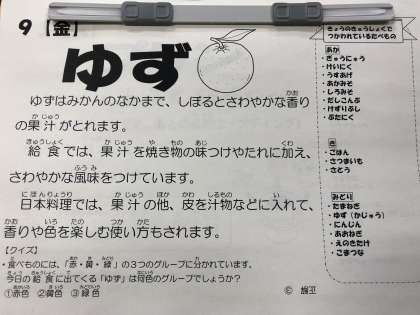 9 【金】
ゆず
ゆずはみかんのなかまで、しぼるとさわやかな香り
の果汁がとれます。
給食では、果汁を焼き物の味つけやたれに加え、
さわやかな風味をつけています。
日本料理では、果汁の他、皮を汁物などに入れて、
香りや色を楽しむ使い方もされます。
【クイズ】
・食べものには、「赤・黄・緑」の3つのグループに分かれています。
今日の給食に出てくる「ゆず」は何色のグループでしょうか?
①赤色 ②黄色 ③緑色
きょうのきゅうしょくで
つかわれているたべもの
あか
・ぎゅうにゅう
・けいにく
・うすあげ
・あかみそ
・しろみそ
・だしこんぶ
・けずりぶし
・ぶたにく
き
・ごはん
・さつまいも
・さとう
みどり
・たまねぎ
・ゆず（かじゅう）
・にんじん
・あおねぎ
・えのきたけ
・こまつな
©